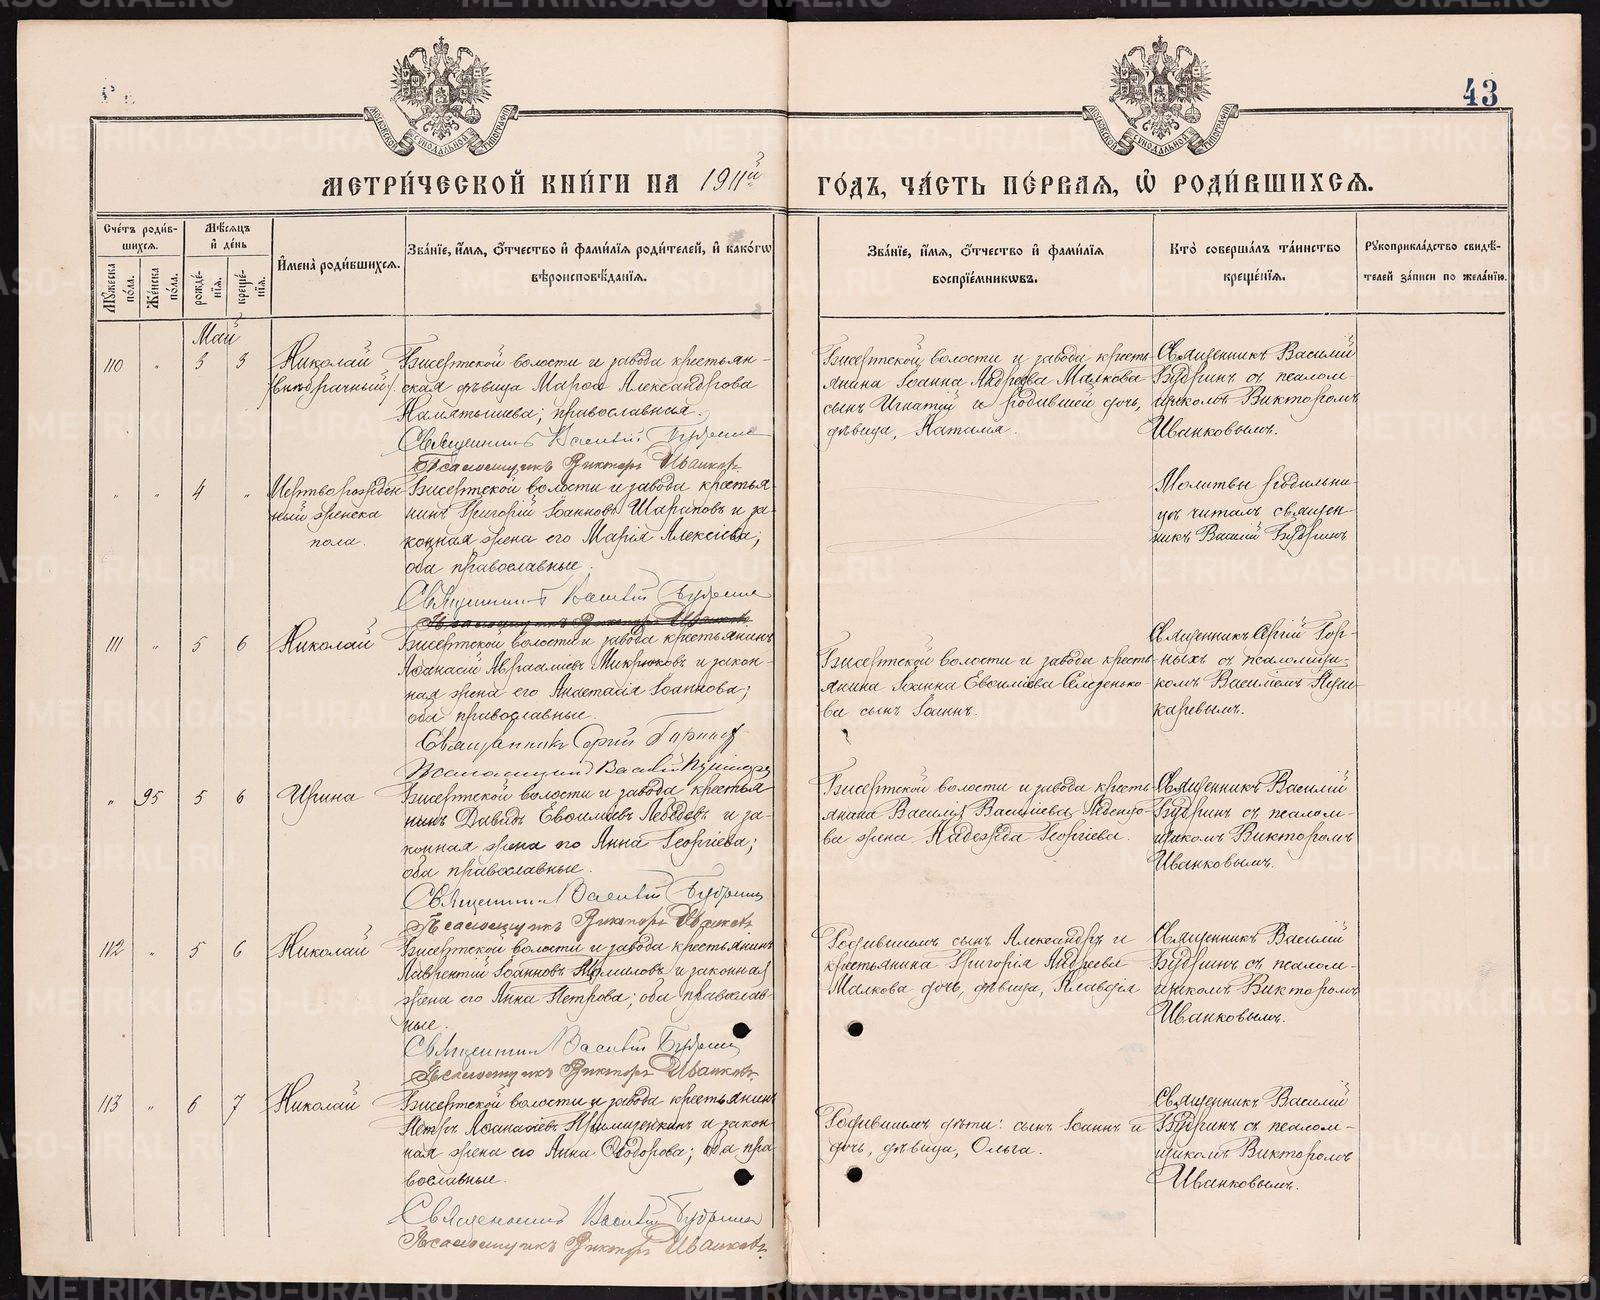 43
МЕТРИ́ЧЕСКОЙ КНИ́ГИ НА 1911й ГО́ДЪ, ЧА́СТЬ ПЕ́РВАЯ, Ѡ҆ РОДИ́ВШИХСЯ.
Сче́тъ роди́в-
шихся.
Му́жеска по́ла.
Же́нска по́ла.
Мѣ́сяцъ
и҆ де́нь
рожде́-
нїя.
креще́-
нїя.
И҆мена̀ роди́вшихся.
Зва́нїе, и҆́мя, ѻ҆́тчество и҆ фами́лїя роди́телей, и҆ како́гѡ
вѣроисповѣ́данїя.
Зва́нїе, и҆́мя, ѻ҆́тчество и҆ фами́лїя
воспрїе́мникѡвъ.
Кто̀ соверша́лъ та́инство
креще́нїя.
Рꙋкоприкла́дство свидѣ́-
телей за́писи по жела́нїю.
Май
110 " 3 3
Николай
(внѣбрачный)
Бисертской волости и завода крестьян-
ская дѣвица Марѳа Александрова
Камятышева; православная.
Священникъ Василій Будринъ
Псаломщикъ Викторъ Иванковъ
Бисертской волости и завода кресть-
янина Іоанна Андреева Малкова
сынъ Игнатій и родившей дочь,
дѣвица, Наталія.
Священникъ Василій
Будринъ съ псалом-
щикомъ Викторомъ
Иванковымъ.
" " 4 "
Мертворожден
ный женска
пола.
Бисертской волости и завода крестья-
нинъ Григорій Іоанновъ Шараповъ и за-
конная жена его Марія Алексіева;
оба православные.
Священникъ Василій Будринъ
Псаломщикъ Викторъ Иванковъ
Молитвы родильни-
цѣ читалъ священ-
никъ Василій Будринъ
111 " 5 6
Николай
Бисертской волости и завода крестьянинъ
Аѳанасій Авраамиевъ Микрюковъ и закон-
ная жена его Анастасія Іоаннова;
оба православные.
Священникъ Сергій
Псаломщикъ Василій
Бисертской волости и завода кресть-
янина Іоанна Евѳиміева Селезенько-
ва сынъ Іоаннъ.
Священникъ Сергій Гор-
ныхъ съ псаломщи-
комъ Василіемъ
каревымъ.
" 95 5 6
Ирина
Бисертской волости и завода крестья-
нинъ Давидъ Евѳиміевъ Лебедевъ и за-
конная жена его Анна Георгіева;
оба православные.
Священникъ Василій Будринъ
Псаломщикъ Викторъ Иванковъ
Бисертской волости и завода кресть-
янина Василія Василиева
ва жена Надежда Георгіева.
Священникъ Василій
Будринъ съ псалом-
щикомъ Викторомъ
Иванковымъ.
112 " 5 6
Николай
Бисертской волости и завода крестьянинъ
Лаврентій Іоанновъ и законная
жена его Анна Петрова; оба православ-
ные.
Священникъ Василій Будринъ
Псаломщикъ Викторъ Иванковъ
Родившимъ сынъ Александръ и
крестьянина Григорія Андреева
Малкова дочь, дѣвица, Клавдія
Священникъ Василій
Будринъ съ псалом-
щикомъ Викторомъ
Иванковымъ.
113 " 6 7
Николай
Бисертской волости и завода крестьянинъ
Петръ Аѳанасіевъ и закон-
ная жена его Анна Ѳеодорова; оба пра-
вославные.
Священникъ Василій Будринъ
Псаломщикъ Викторъ Иванковъ
Родившимъ дѣти: сынъ Іоаннъ и
дочь, дѣвица, Ольга.
Священникъ Василій
Будринъ съ псалом-
щикомъ Викторомъ
Иванковымъ.
METRIKI.GASO-URAL.RU